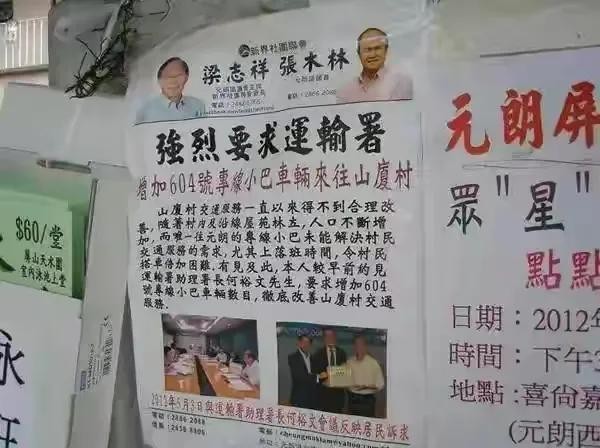 新界社團聯會
梁志祥 張木林
元朗區議會主席
元朗區議員
電話
強烈要求運輸署
增加604號專線小巴車輛來往山廈村
山廈村交通服務一直以來得不到合理改
善，隨著村內及沿線屋苑林立，人口不斷增
加，而唯一往元朗的專線小巴未能解決村民
交通服務的需求，尤其上落班時間，令村民
搭車倍加困難，有見及此，本人較早前約見
運輸署助理署長何裕文先生，要求增加604
號專線小巴車輛數目，徹底改善山廈村交通
服務。
2012年5月3日與運輸署助理署長何裕文會議反映居民訴求
電話：2886 2068
$60/堂
屏山天水圍
室內泳池上堂
泳
元朗屏
眾"星"
點點
日期：2012年
時間：下午3
地點：喜尚嘉
(元朗西